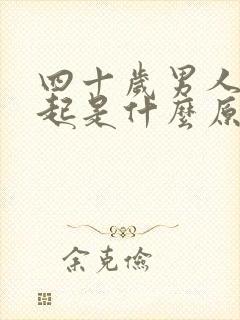 四十歲男人
起是什麼原
余克儉